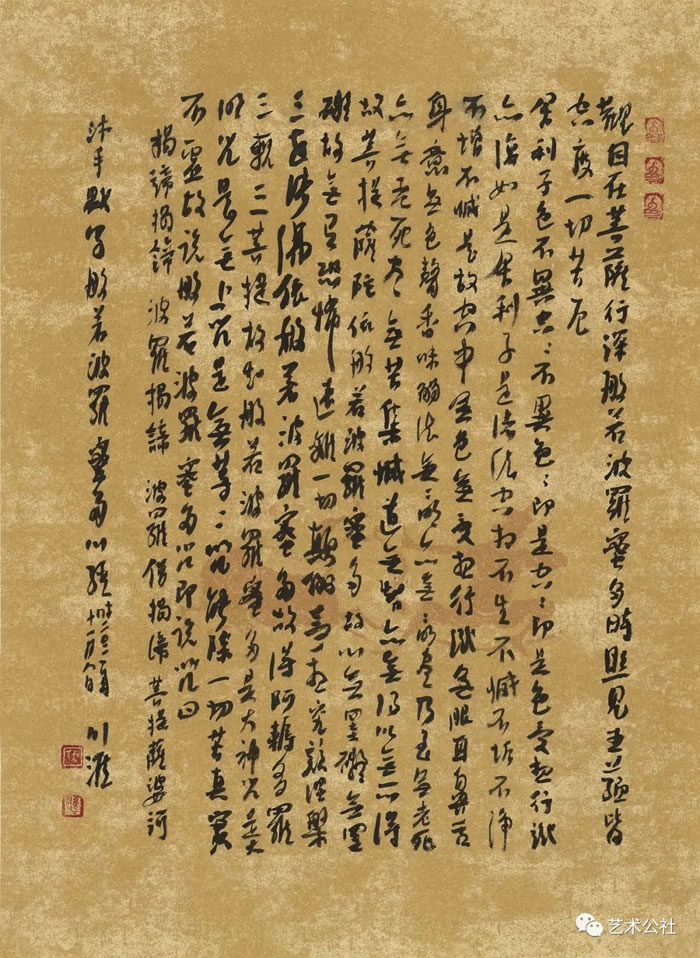 觀自在菩薩行深般若波羅蜜多時照見五蘊皆
空度一切苦厄
舍利子色不異空〻不異色〻即是空〻即是色受想行識
亦復如是舍利子是諸法空相不生不滅不垢不淨
不增不減是故空中無色無受想行識無眼耳鼻舌
身意無色聲香味觸法無明亦無明盡乃至無老死
亦無老死盡無苦集滅道無智亦無得以無所得
故菩提薩陀依般若波羅蜜多故心無罣礙無罣
礙故無有恐怖遠離一切顛倒夢想究竟涅槃
三世諸佛依般若波羅蜜多故得阿耨多羅
三藐三菩提故知般若波羅蜜多是大神咒是大
明咒是無上咒是無等〻咒能除一切苦真實
不虛故說般若波羅蜜多咒即說咒曰
揭諦揭諦 波羅揭諦 波羅僧揭諦 菩提薩婆訶
沐手敬寫般若波羅蜜多心經
艺术公社